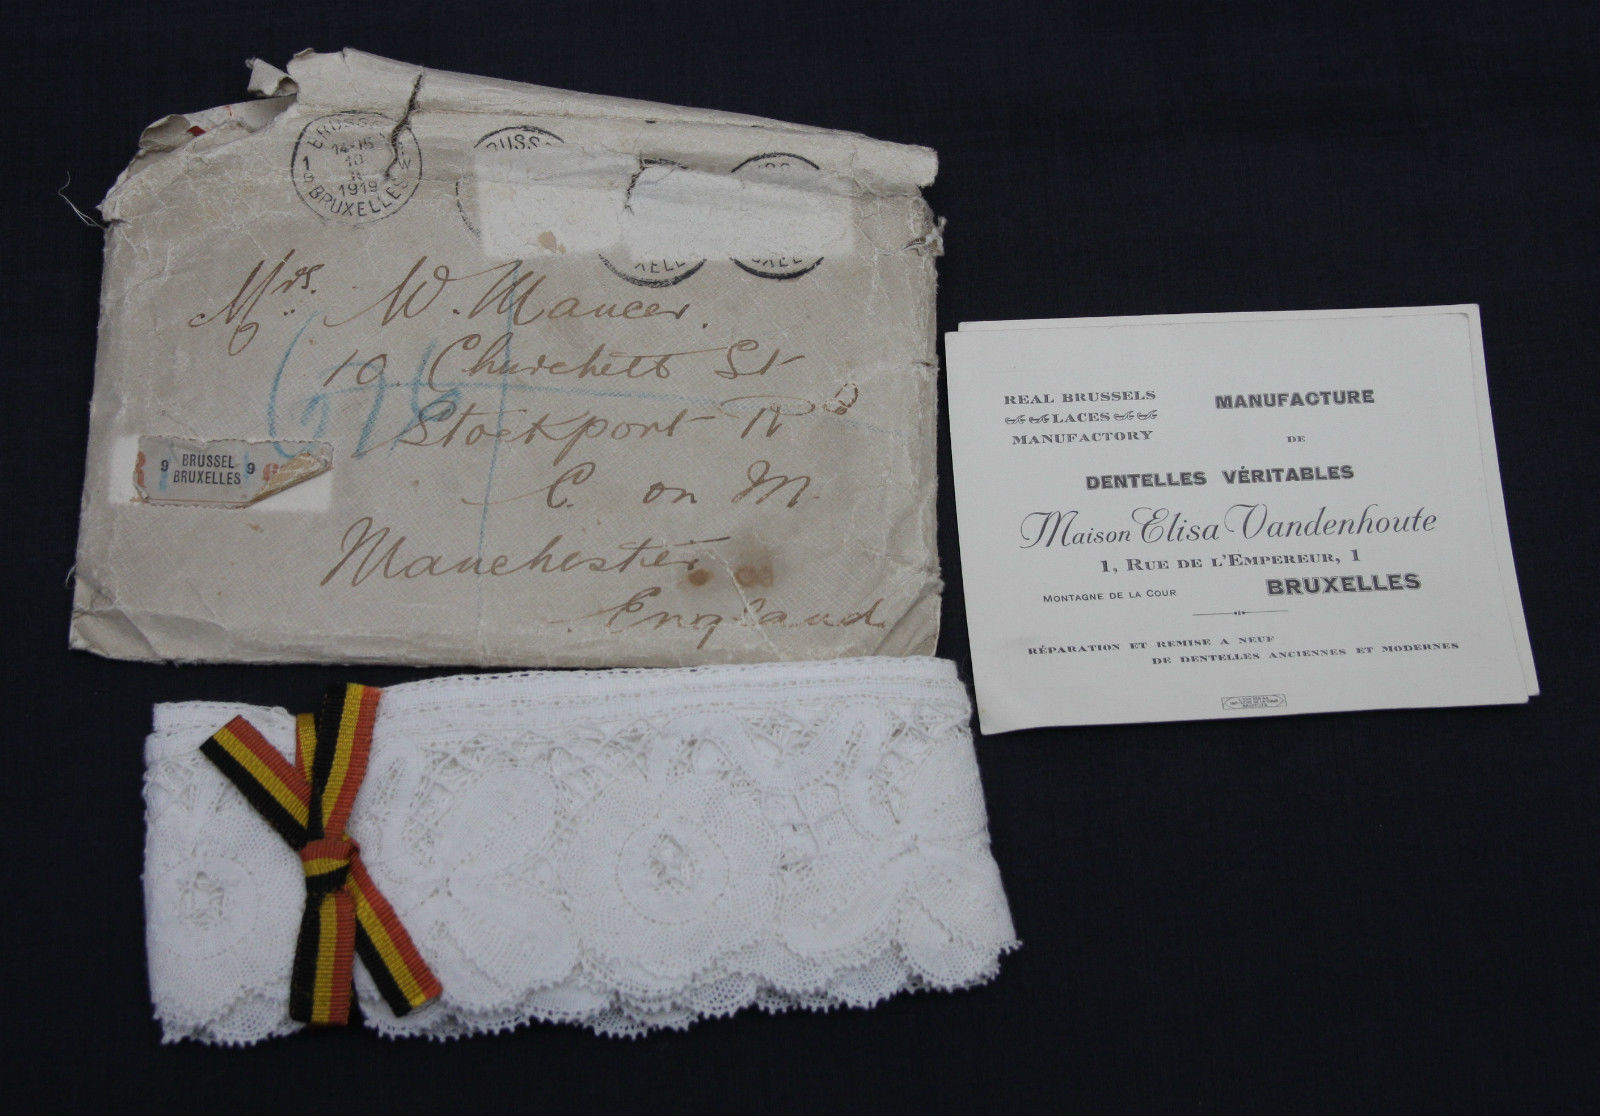 14-15
10
1919
BRUXELLES
Mrs. W. Mancer.
10 Churchett St
Stockport Rd
C. on M.
Manchester
England.
9 BRUSSEL 9
BRUXELLES
REAL BRUSSELS
LACES
MANUFACTORY
MANUFACTURE
DE
DENTELLES VÉRITABLES
Maison Elisa Vandenhoute
1, RUE DE L'EMPEREUR, 1
MONTAGNE DE LA COUR
BRUXELLES
RÉPARATION ET REMISE A NEUF
DE DENTELLES ANCIENNES ET MODERNES